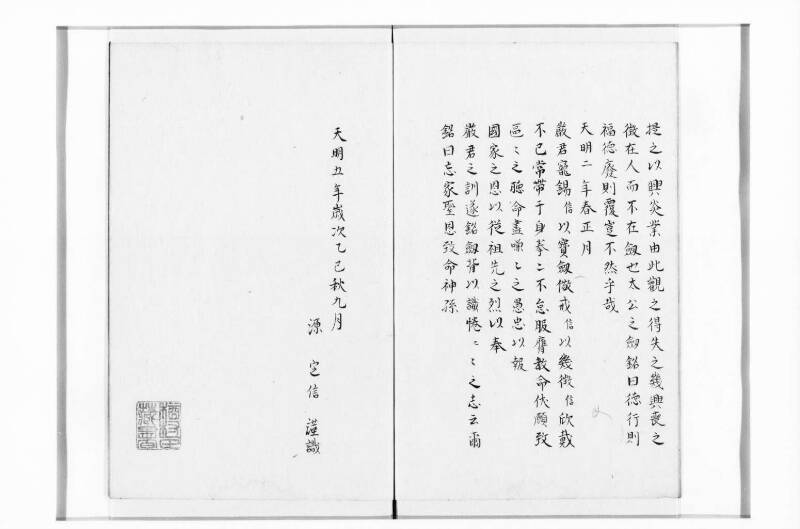 提之以興炎業由此觀之得失之幾興喪之
徴在人而不在劔也太公之劔銘曰德行則
福德廢則覆豈不然乎哉
天明二年春正月
嚴君寵錫信以寶劔儆戒信以幾徴信欣戴
不已常帶于身拳〻不怠服膺教命伏願致
區〻之聽命盡 〻之愚忠以報
國家之恩以從祖先之烈以奉
嚴君之訓遂銘劔背以識惓〻〻之志云爾
銘曰忘家聖恩致命神孫
天明五年歲次乙巳秋九月
源 定信 謹識